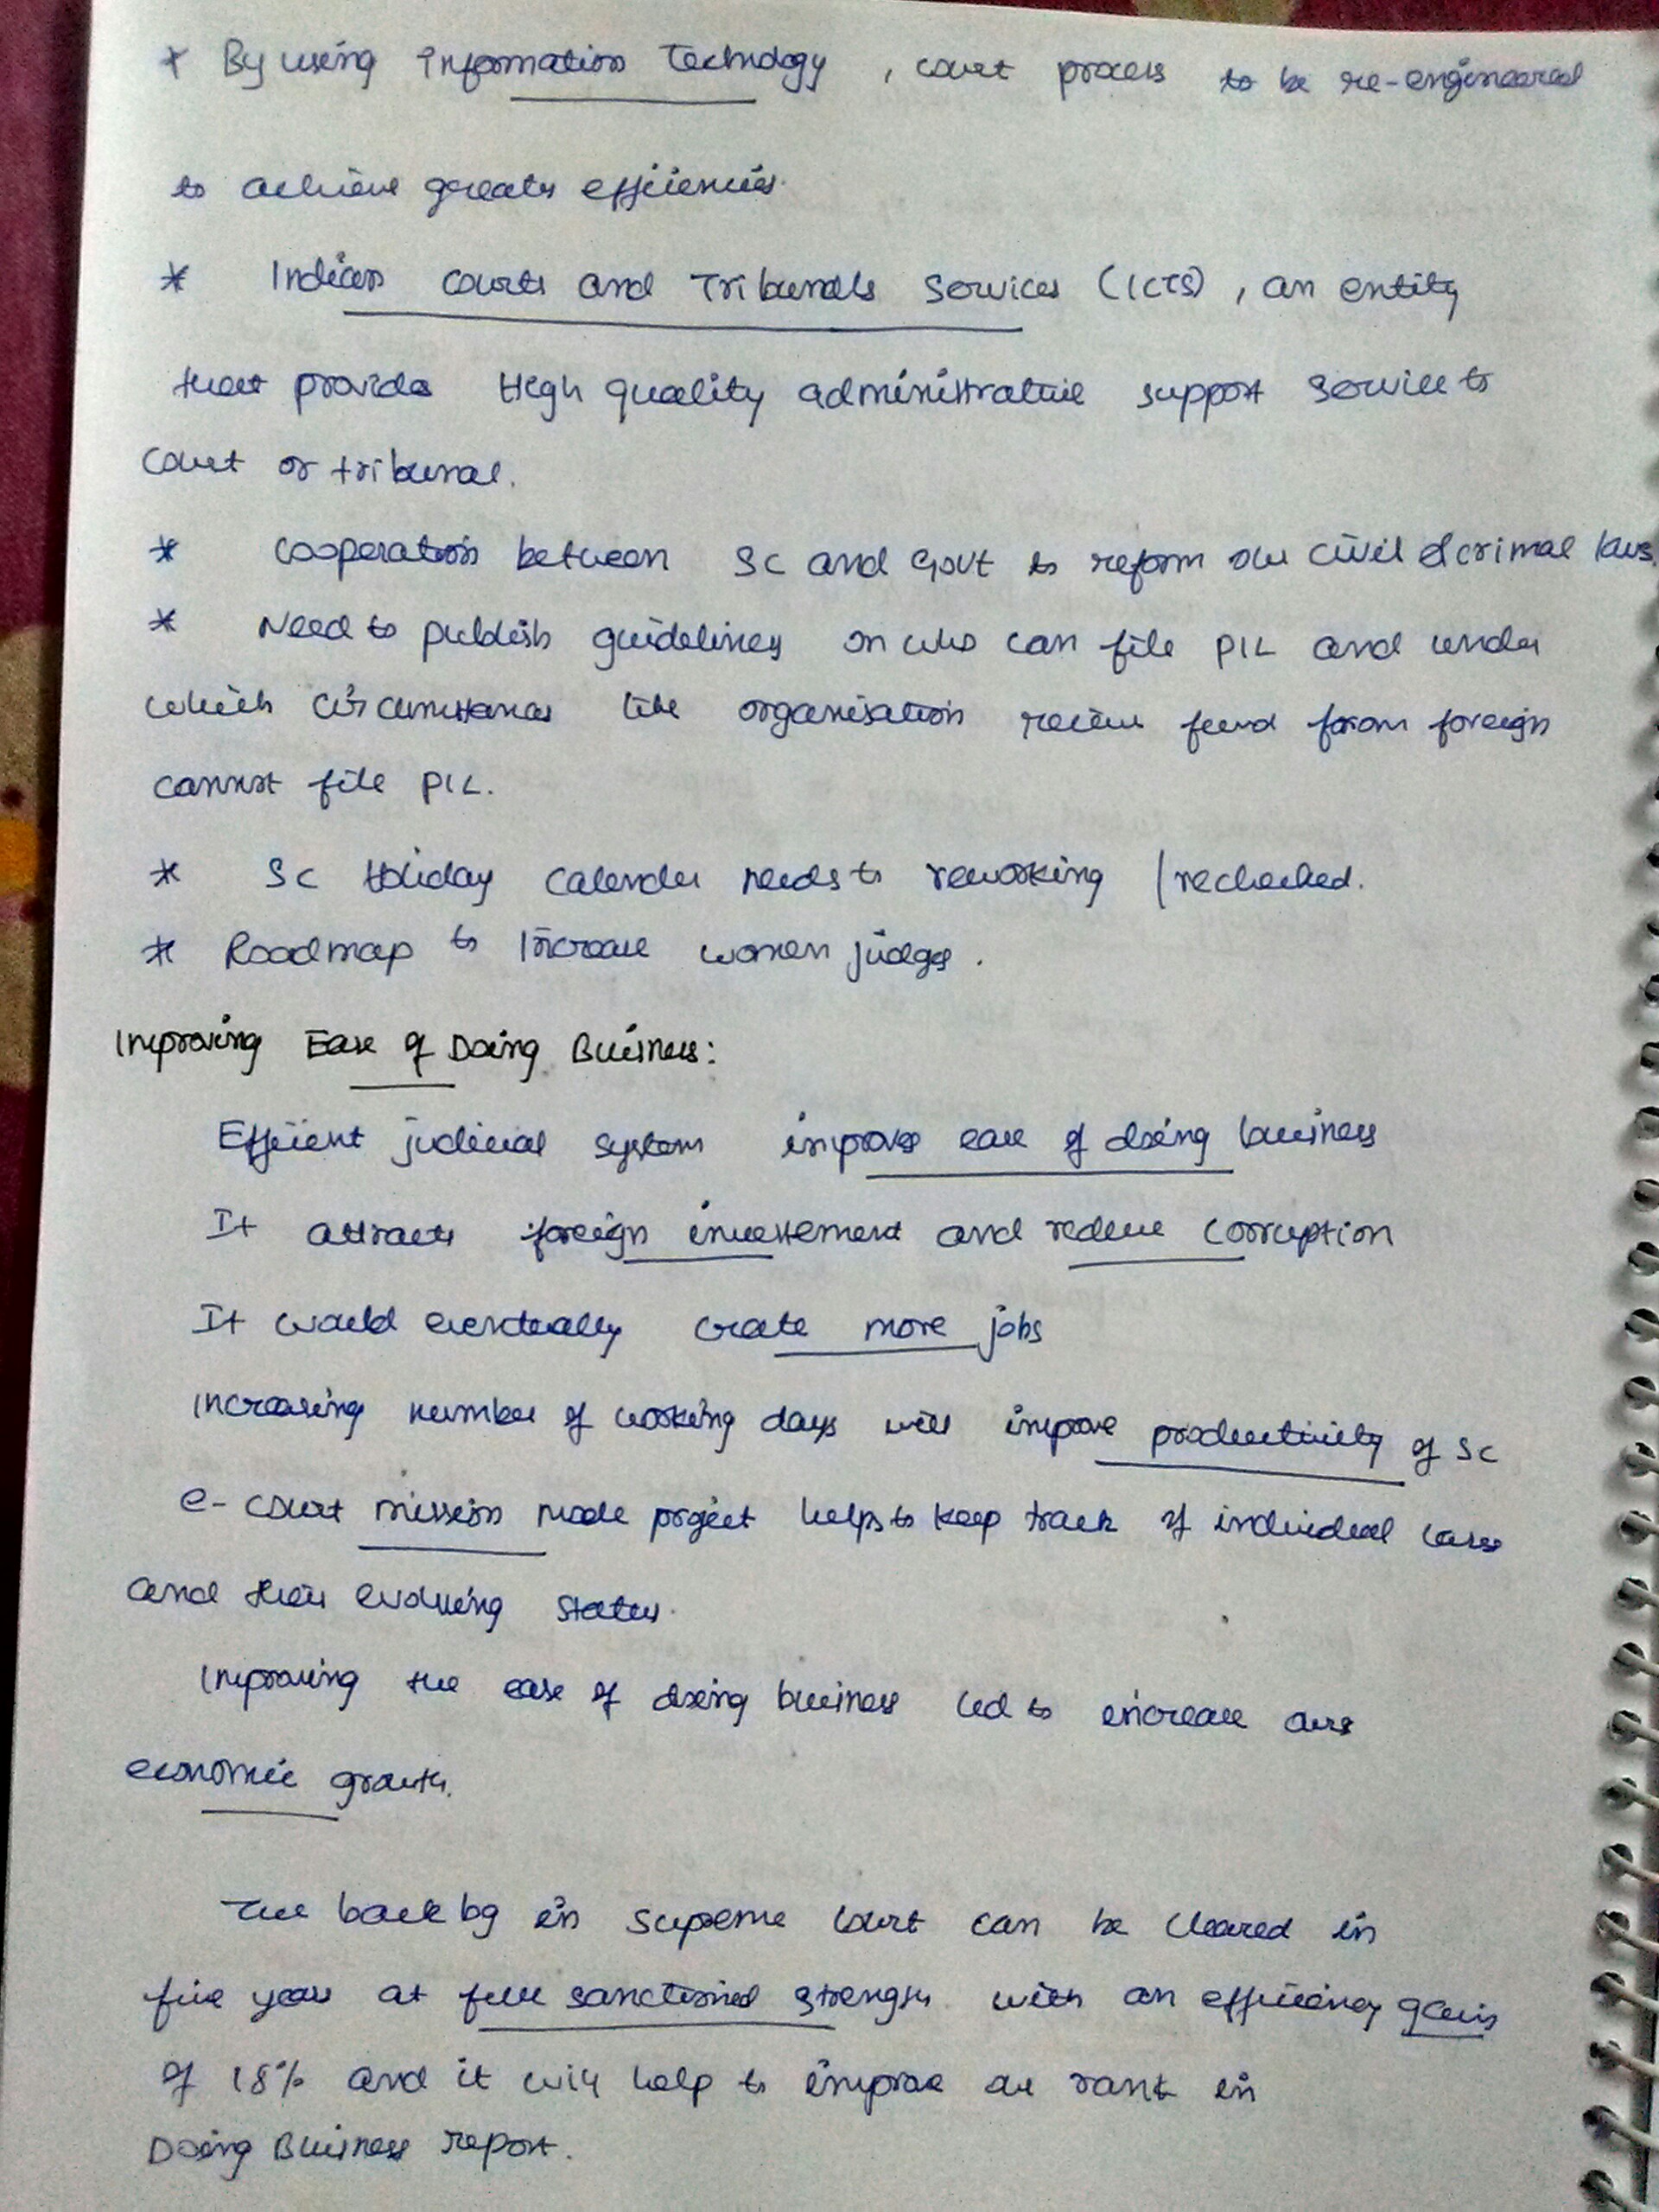 * By using Information Technology, court process to be re-engineered
to achieve greater efficiencies.
* Indian courts and Tribunals Services (ICTS), an entity
that provides High quality administrative support service to
court or tribunal.
* cooperation between SC and Govt to reform our civil & crimal laws.
* Need to publish guidelines on who can file PIL and under
which circumstances like organisation recieve fund from foreign
cannot file PIL.
* SC Holiday Calender needs to reworking / rechecked.
* Roadmap to Increase women judges.
Improving Ease of Doing Business:
Efficient judicial system improves ease of doing business
It attracts foreign investement and reduce corruption
It would eventually create more jobs
Increasing number of working days will improve productivity of SC
e-court mission mode project helps to keep track of individual cases
and their evolving status.
Improving the ease of doing business led to increase our
economic growth.
The backlog in supreme court can be cleared in
five years at full sanctioned strength with an efficiency gain
of 18% and it will help to improve our rank in
Doing Business report.